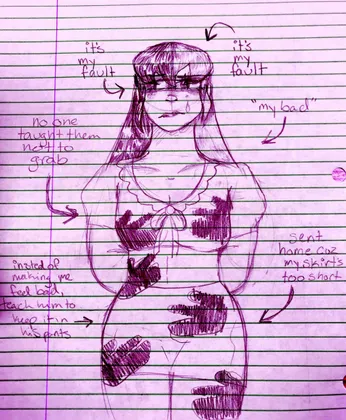 it's
my
fault
it's
my
fault
"my bad"
no one
taught them
not to
grab
sent
home coz
my skirt's
too short
instead of
making me
feel bad,
teach him to
keep it in
his pants